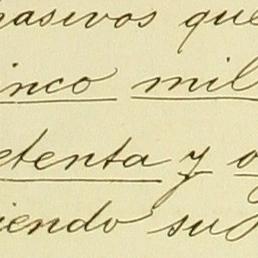 pasivos que
inco mil
etenta y o
iendo su